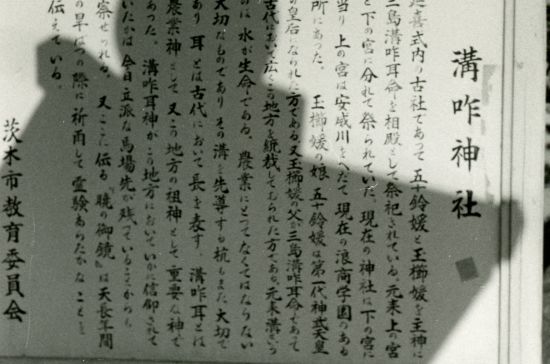 溝咋神社
延喜式内の古社であって五十鈴媛と玉櫛媛を主神に
三島溝咋耳命を相殿として祭祀されている。元来上の宮
と下の宮に分れて祭られていた。現在の神社は下の宮に
当り上の宮は安威川をへだて現在の浪商学園のある
所にあった。 玉櫛媛の娘五十鈴媛は第一代神武天皇
の皇后になられた方である。又玉櫛媛の父が三島溝咋耳命であって
古代において広くこの地方を統裁しておられた方である。元来溝と
のは水が生命である。農業にとってなくてはならない
大切なものでありその溝を先導する杭もまた大切で
あり耳とは古代において長を表す。溝咋耳とは
農業神として又この地方の祖神として重要な神で
あった。 溝咋耳神がこの地方においていかに信仰されて
いたかは今日立派な馬場先が残っていることからも
察せられる。又ここに伝る『暁の御鏡』は天長年間
の旱ばつの際に祈雨して霊験あらたかなことを
伝えている。
茨木市教育委員会